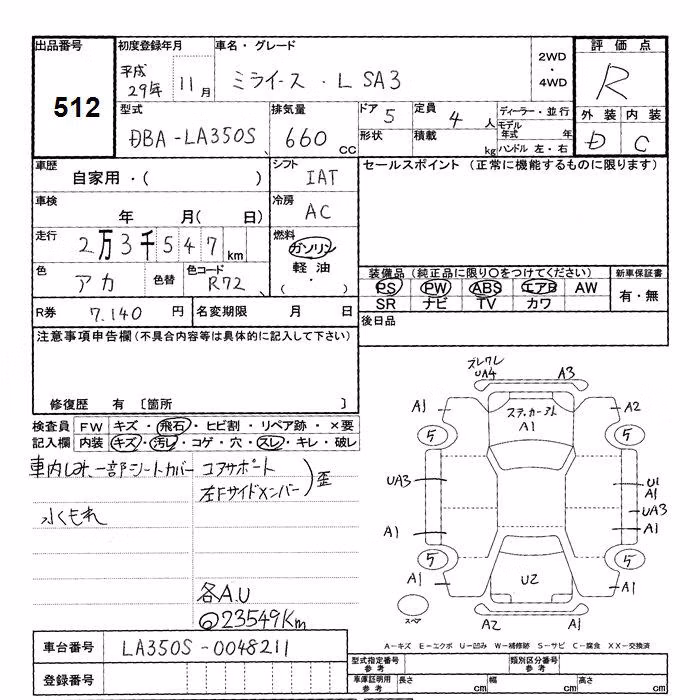 出品番号 初度登録年月 車名・グレード 2WD・4WD 評価点
512 平成29年 11月 ミライース・L SA3 R
型式 排気量 ドア 5 定員 4人 ディーラー・並行 外装 内装
DBA-LA350S 660cc 形状 積載 kg モデル年式 年 D C
ハンドル 左・右
車歴 シフト セールスポイント (正常に機能するものに限ります)
自家用・( ) IAT
車検 冷房
年 月( 日) AC
走行 燃料
2万3千547km ガソリン
色 色替 色コード 軽油
アカ R72 ( ・ )
装備品(純正品に限り○をつけてください) 新車保証書
PS PW ABS エアB AW 有・無
SR ナビ TV カワ
R券 7.140円 名変期限 月 日 後日品
注意事項申告欄(不具合内容等は具体的に記入して下さい)
修復歴 有 〔箇所 〕
検査員 FW キズ・飛石・ヒビ割・リペア跡・×要
記入欄 内装 キズ・汚レ・コゲ・穴・スレ・キレ・破レ
車内しみ、一部シートカバー コアサポート
左Fサイドメンバー )歪
水くもれ
各A.U
◎23549Km
ズレワレ
UA4 A3
A1 A2
ステッカーアト
A1
5 5
UA3 U1
A1
UA3
A1 A1
5 5
U2
A1 A1
スペア
A2 A1
A-キズ E-エクボ U-凹み W-補修跡 S-サビ C-腐食 XX-交換済
車台番号 LA350S-0048211
登録番号
型式指定番号 参考 類別区分番号 参考
車庫証明用 参考 長さ cm 幅 cm 高さ cm